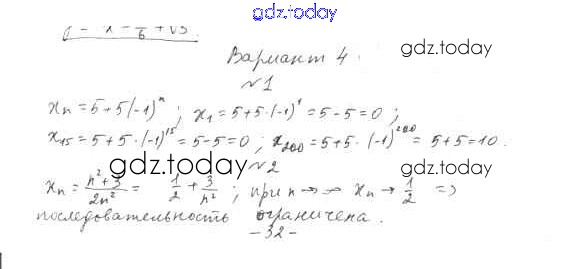 gdz.today
y = x - π/6 + √3
Вариант 4.
gdz.today
№1
xn = 5+5(-1)^n; x1 = 5+5·(-1)^1 = 5-5 = 0;
x15 = 5+5·(-1)^15 = 5-5 = 0; x200 = 5+5·(-1)^200 = 5+5 = 10.
gdz.today
№2
xn = (n²+3)/(2n²) = 1/2 + 3/n²; при n→∞ xn → 1/2 =>
последовательность ограничена.
gdz.today
-32-